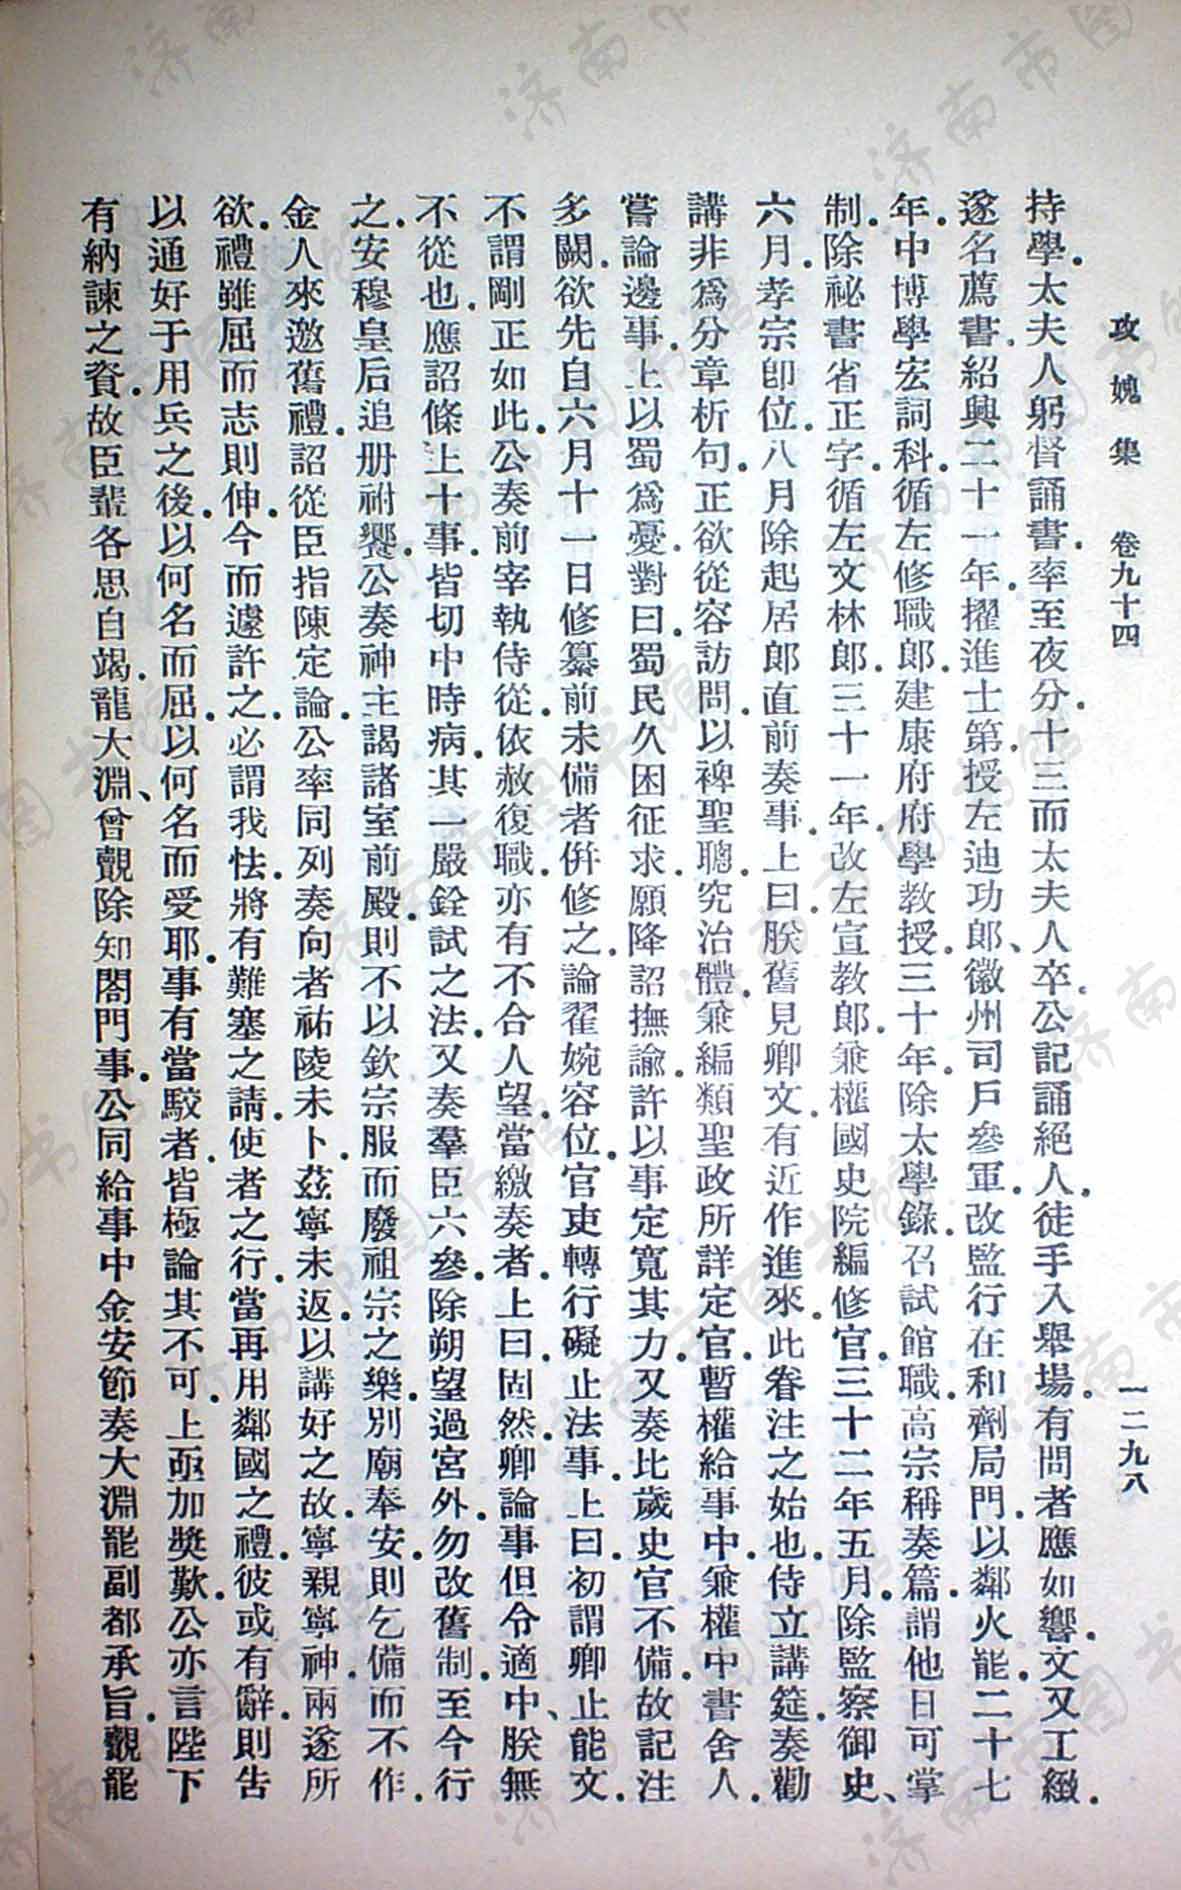 攻媿集　卷九十四　一二九八
持學.太夫人躬督誦書.率至夜分.十三而太夫人卒.公記誦絕人.徒手入舉場.有問者應如響.文又工緻.
遂名薦書.紹興二十一年.擢進士第.授左迪功郎、徽州司戶參軍.改監行在和劑局門.以鄰火罷.二十七
年.中博學宏詞科.循左修職郎.建康府府學教授.三十年.除太學錄.召試館職.高宗稱奏篇.謂他日可掌
制.除祕書省正字.循左文林郎.三十一年.改左宣教郎.兼權國史院編修官.三十二年五月.除監察御史、
六月.孝宗卽位.八月除起居郎.直前奏事.上曰.朕舊見卿文.有近作進來.此眷注之始也.侍立講筵.奏勸
講非爲分章析句.正欲從容訪問.以裨聖聰.究治體.兼編類聖政所詳定官.暫權給事中.兼權中書舍人.
嘗論邊事.上以蜀爲憂.對曰.蜀民久困征求.願降詔撫諭.許以事定寬其力.又奏比歲史官不備.故記注
多闕.欲先自六月十一日修纂.前未備者併修之.論翟婉容位.官吏轉行礙止法事.上曰.初謂卿止能文.
不謂剛正如此.公奏前宰執侍從.依赦復職.亦有不合人望.當繳奏者.上曰.固然.卿論事但令適中、朕無
不從也.應詔條上十事.皆切中時病.其一嚴銓試之法.又奏羣臣六參.除朔望過宮外.勿改舊制.至今行
之.安穆皇后追册祔饗.公奏神主謁諸室前殿.則不以欽宗服而廢祖宗之樂.別廟奉安.則乞備而不作.
金人來邀舊禮.詔從臣指陳定論.公率同列奏向者祐陵未卜.茲寧未返.以講好之故.寧親寧神.兩遂所
欲.禮雖屈而志則伸.今而遽許之.必謂我怯.將有難塞之請.使者之行.當再用鄰國之禮.彼或有辭.則告
以通好于用兵之後.以何名而屈.以何名而受耶.事有當駁者.皆極論其不可.上亟加獎歎.公亦言陛下
有納諫之資.故臣輩各思自竭.龍大淵、曾覿除知閤門事.公同給事中金安節奏大淵罷副都承旨.覿罷